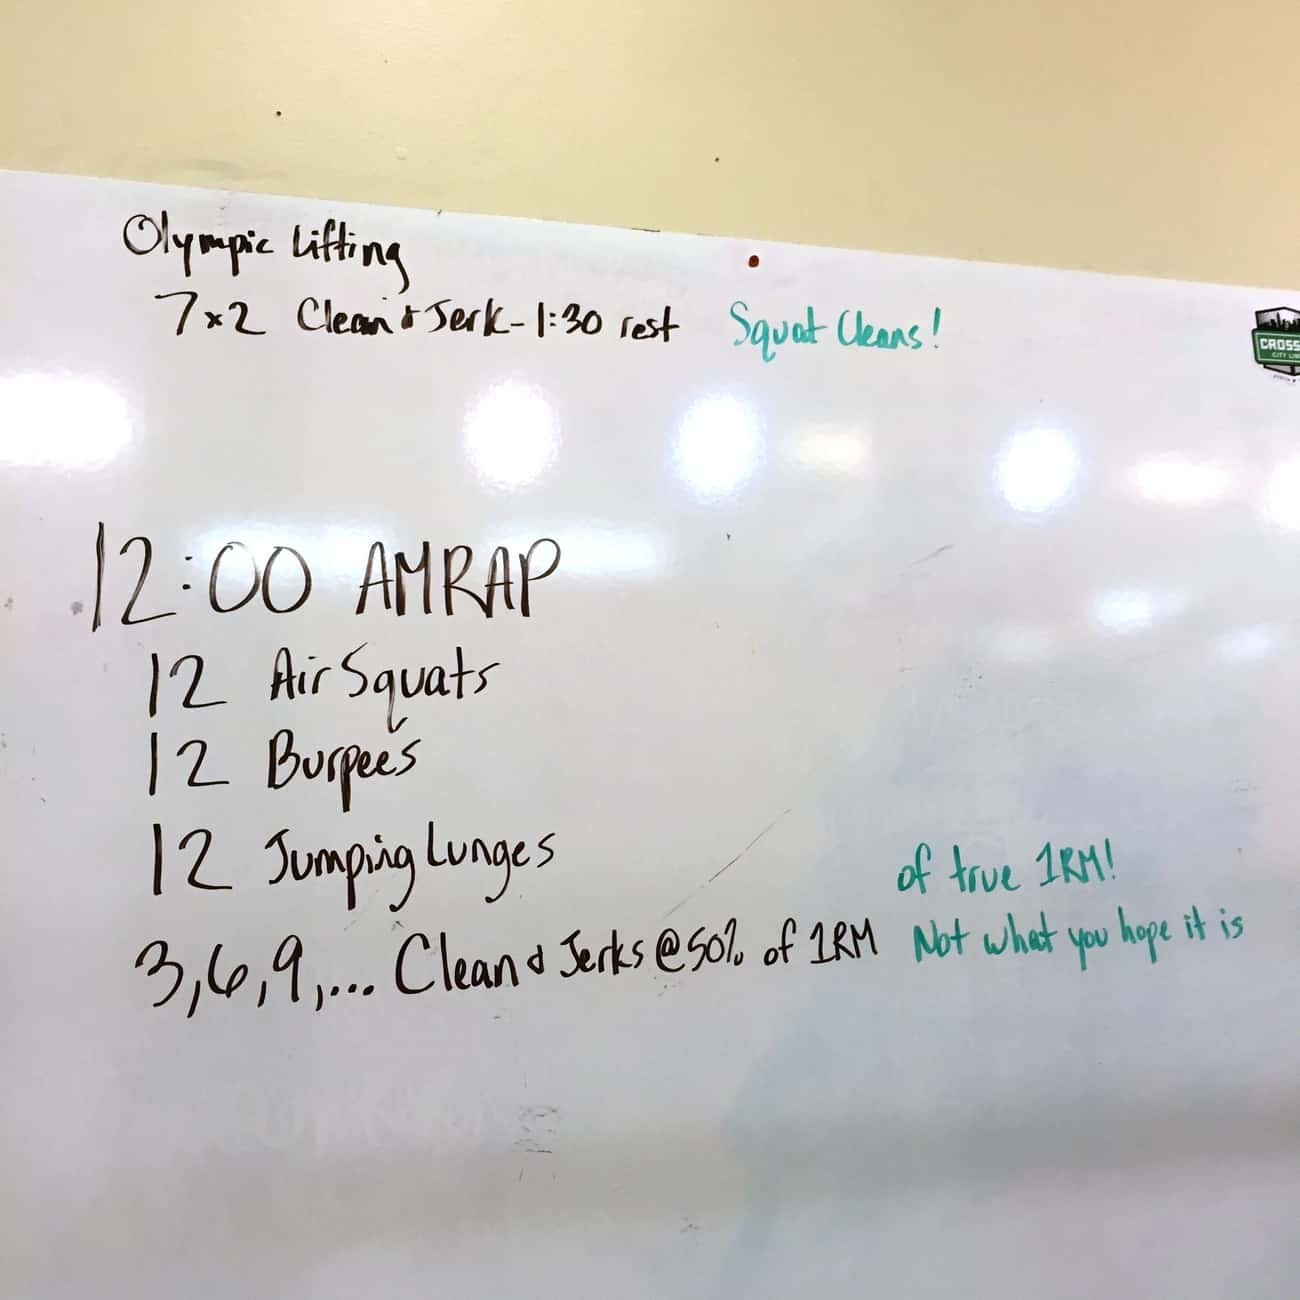 Olympic Lifting
7x2 Clean & Jerk - 1:30 rest Squat Cleans!
CROSS
CITY
12:00 AMRAP
12 Air Squats
12 Burpees
12 Jumping Lunges
of true 1RM!
3,6,9,... Clean & Jerks @ 50% of 1RM Not what you hope it is